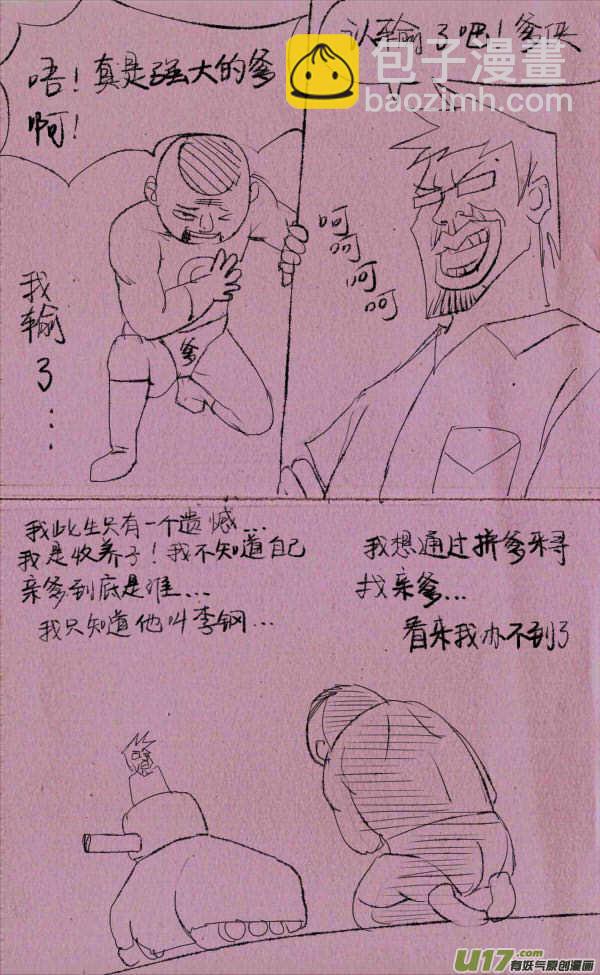 认输了吧！爹侠
呵
呵
呵
呵
唔！真是强大的爹
啊！
爹
我
输
了
...
我此生只有一个遗憾...
我是收养子！我不知道自己
亲爹到底是谁...
我只知道他叫李钢...
我想通过拼爹来寻
找亲爹...
看来我办不到了
包子漫畫
baozimh.com
U17.com
有妖气原创漫画